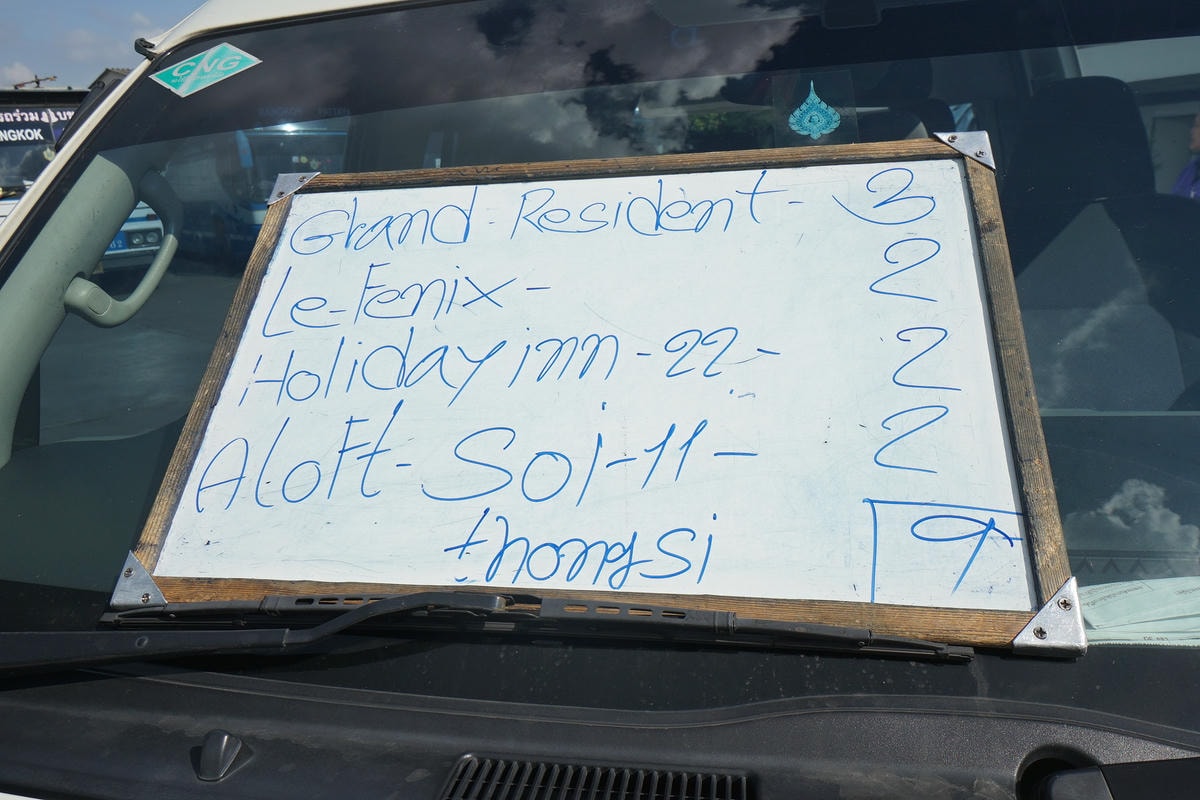 CNG
รถร่วม บข
NGKOK
Grand - Resident - 3
Le-Fenix - 2
Holiday inn - 22 - 2
Aloft - Soi - 11 - 2
thongsi 9